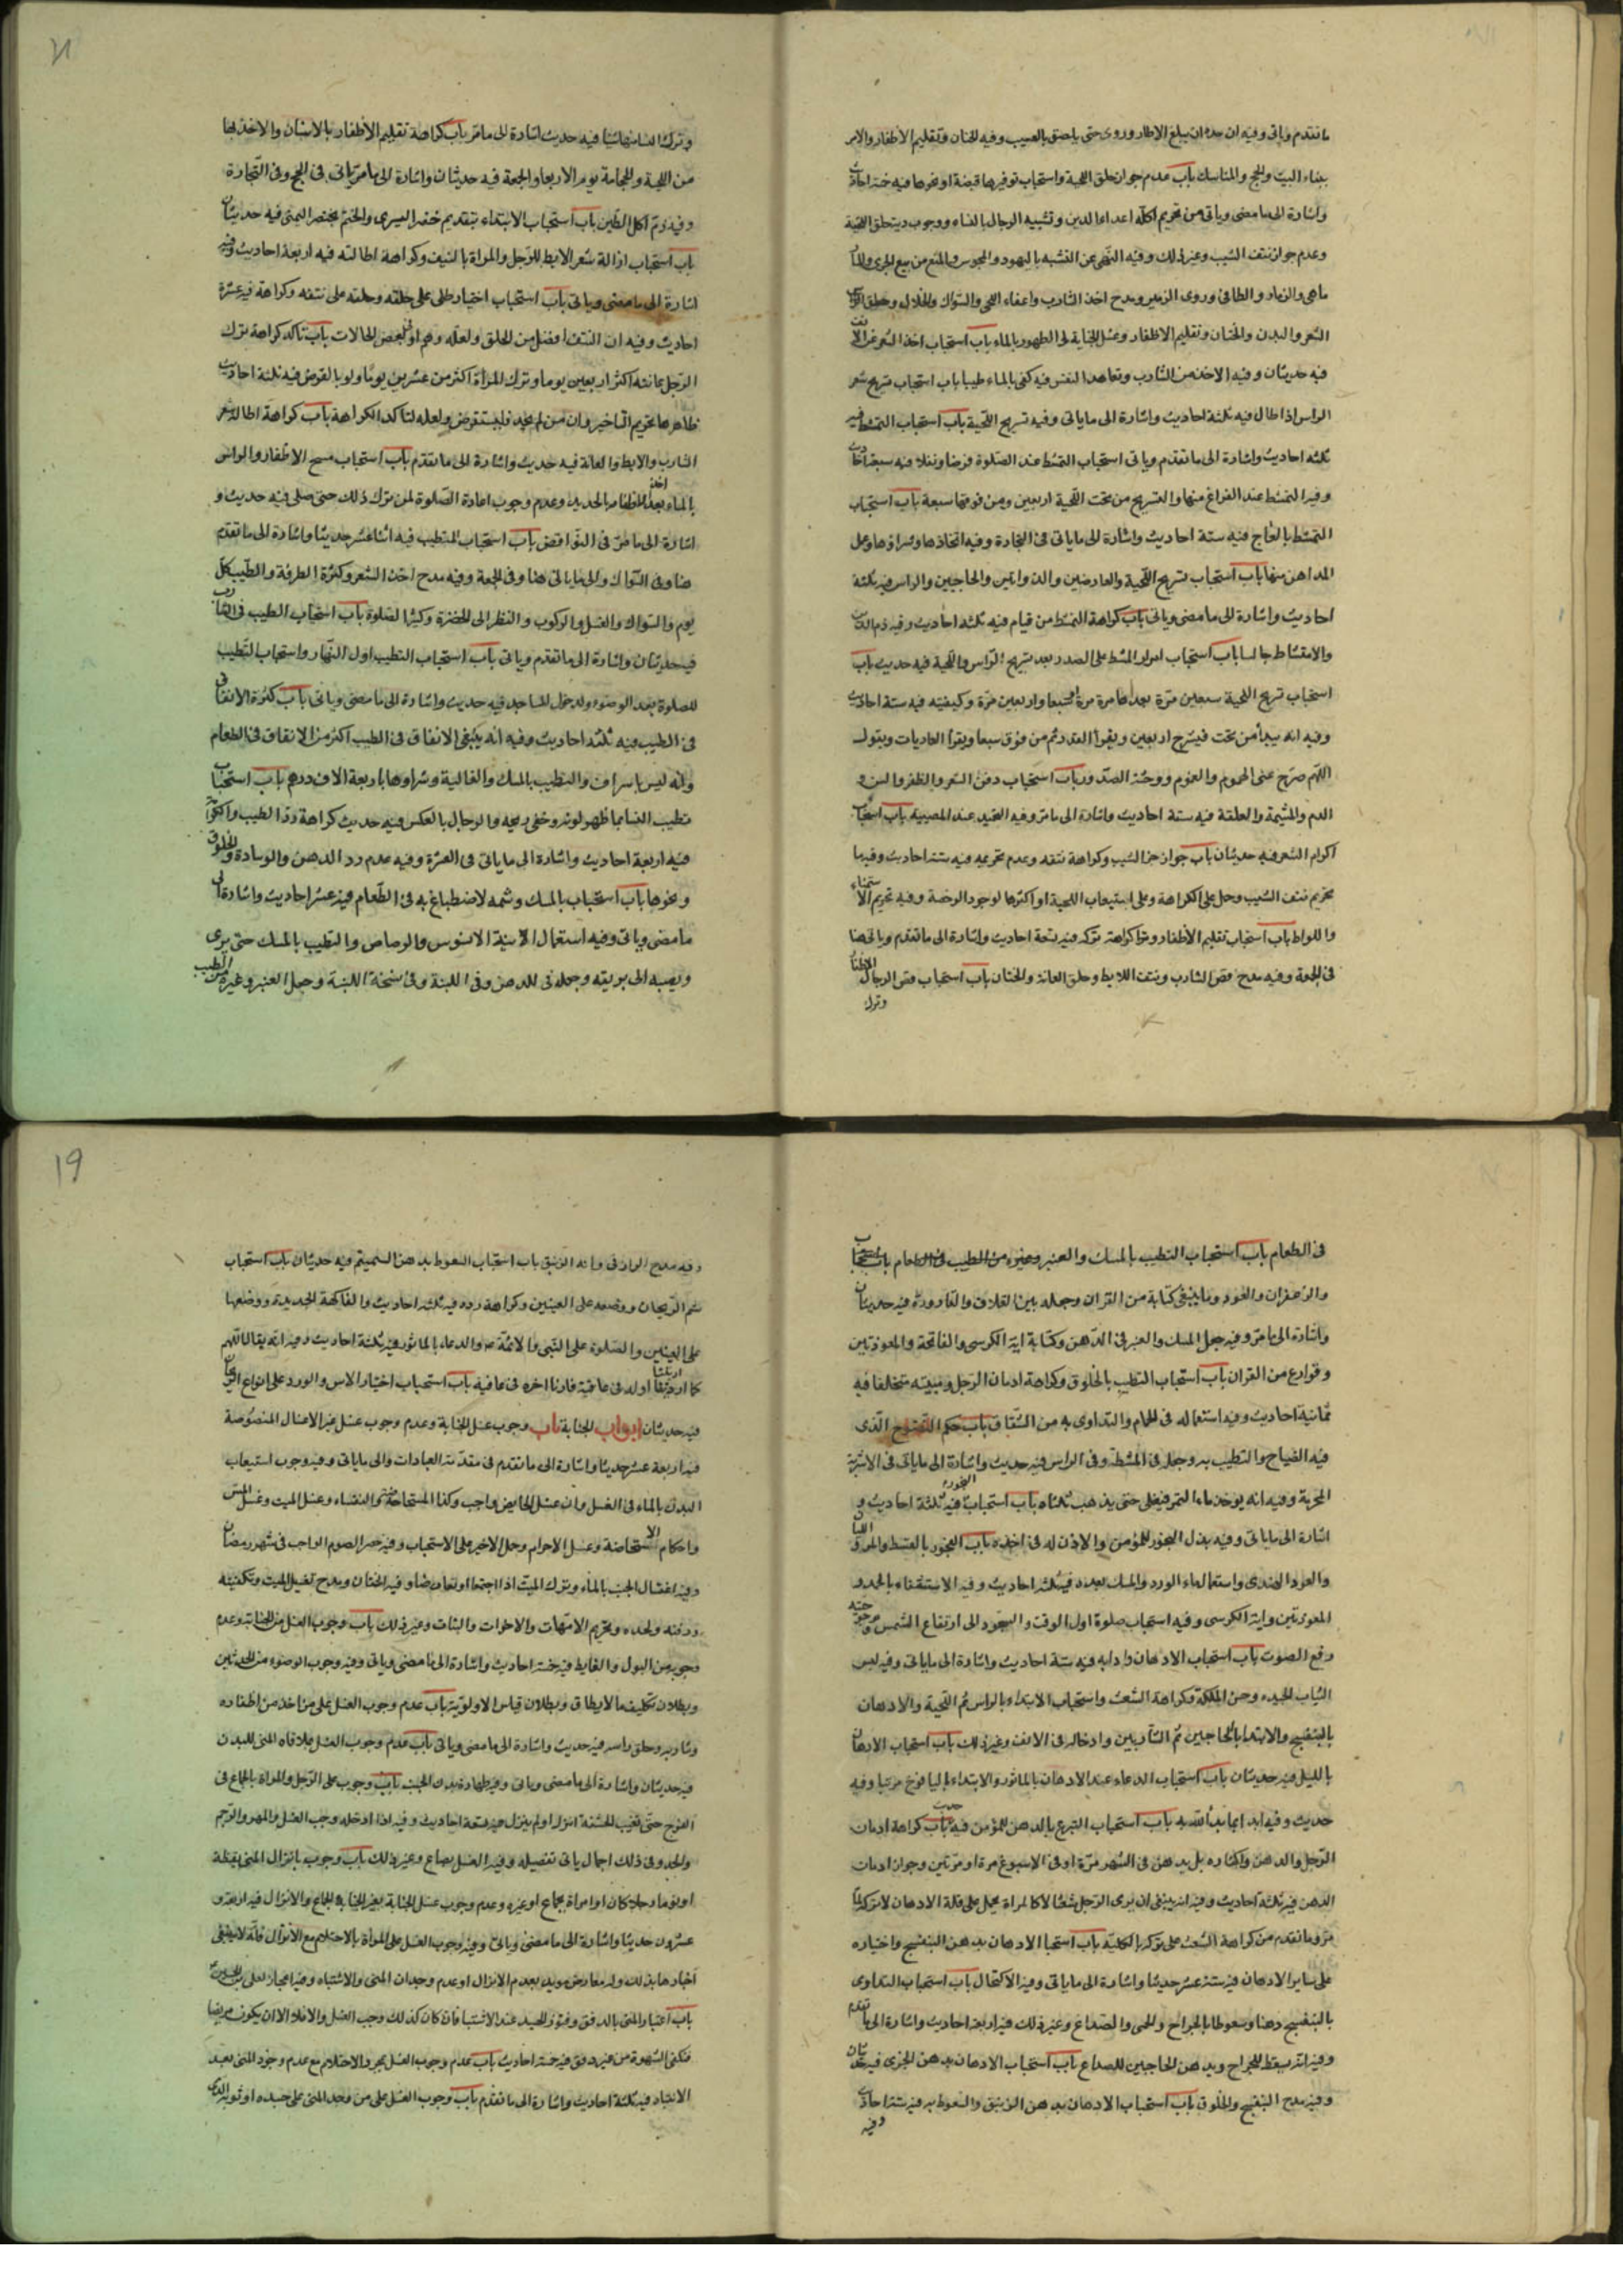 ما تقدم وياتى وفيه ان حده ان يبلغ الاطار وروى حتى يلصق بالعسيب وفيه الختان وتقليم الأظفار والامر
ببناء البيت والحج والمناسك باب عدم جواز حلق اللحية واستحباب توفيرها قبضة او نحوها فيه خمسة احاديث
واشارة الى ما مضى وياتى من تحريم اعداء الدين وتشبيه الرجال بالنساء ووجوب دية حلق اللحية
وعدم جواز نتف الشيب وغير ذلك وفيه النهى عن التشبه باليهود والمجوس والمنع من بيع الجرى والمار
ماهى والزمار والطافى وروى الزمير ومدح اخذ الشارب واعفاء اللحى والسواك والخلال وحلق الراس
الشعر والبدن والختان وتقليم الاظفار وغسل الجنابة الطهور بالماء باب استحباب اخذ الشعر من الانف
فيه حديثان وفيه الاخذ من الشارب وتعاهد النفس فيه كفى بالماء طيبا باب استحباب تسريح شعر
الراس اذا طال فيه ثلثة احاديث واشارة الى ما ياتى وفيه تسريح اللحية باب استحباب التمشط فيه
ثلثه احاديث واشارة الى ما تقدم وياتى استحباب التمشط عند الصلوة فرضا ونفلا فيه سبعة احاديث
وفيه التمشط عند الفراغ منها والتسريح من تحت اللحية اربعين ومن فوقها سبعة باب استحباب
التمشط بالعاج فيه ستة احاديث واشارة الى ما ياتى فى التجارة وفيه اتخاذها وشراؤها وعمل
المداهن منها باب استحباب تسريح اللحية والعارضين والذوابتين والحاجبين والراس فيه ثلثة
احاديث واشارة الى ما مضى وياتى باب كراهة التمشط من قيام فيه ثلثه احاديث وفيه ذم الدين
والامتشاط جالسا باب استحباب امرار المشط على الصدر بعد تسريح الراس واللحية فيه حديث باب
استحباب تسريح اللحية سبعين مرة بعدها مرة مرة او سبعا واربعين مرة وكيفيته فيه ستة احاديث
وفيه انه يبدأ من تحت فيسرح اربعين ويقرأ القدر ثم من فوق سبعا ويقرأ العاديات ويقول
اللهم سرح عنى الهموم والغموم ووحشة الصدور باب استحباب دفن الشعر والظفر والسن و
الدم والمشيمة والعلقة فيه ستة احاديث واشارة الى ما مر وفيه عند المصيبة باب استحباب
اكرام الشعر فيه حديثان باب جواز جز الشيب وكراهة نتفه وعدم تحريمه فيه ستة احاديث وفيها
تحريم نتف الشيب وحمل على الكراهة وعلى استيعاب اللحية او اكثرها لوجود الرخصة وفيه تحريم الاستمناء
واللواط باب استحباب تقليم الأظفار وكراهة تركه فيه تسعة احاديث واشارة الى ما تقدم وياتى هنا
فى الجمعة وفيه مدح قص الشارب ونتف الابط وحلق العانة والختان باب استحباب قص الرجال الاظفار
وترك
وترك النساء منها شيئا فيه حديث اشارة الى ما مر باب كراهة تقليم الأظفار بالاسنان والاخذ بها
من اللحية والحجامة يوم الاربعا والجمعة فيه حديثان واشارة الى ما مر ياتى فى الحج وفى التجارة
وفيه ذم اكل الطين باب استحباب الابتداء بتقديم خنصر اليسرى والختم بخنصر اليمنى فيه حديثان
باب استحباب ازالة شعر الابط للرجل والمراة بالنتف وكراهة اطالته فيه اربعة احاديث وفيه
اشارة الى ما مضى وياتى باب استحباب اختيار طلى على حلقه وحلقه على نتفه وكراهة فيه عشرة
احاديث وفيه ان النتف افضل من الحلق ولعله وهم او لبعض الحالات باب تاكد كراهة ترك
الرجل عانته اكثر اربعين يوما وترك المراة اكثر من عشرين يوما ولو بالقرض فيه ثلثة احاديث
ظاهرها تحريم التاخير وان من لم يجد فليستقرض ولعله لتاكد الكراهة باب كراهة اطالة شعر
الشارب والابط والعانة فيه حديث واشارة الى ما تقدم باب استحباب مسح الاظفار والراس
بالماء بعد اخذ الاظفار بالحديد وعدم وجوب اعادة الصلوة لمن ترك ذلك حتى صلى فيه حديث و
اشارة الى ما مر فى النواقض باب استحباب التطيب فيه اثنا عشر حديثا واشارة الى ما تقدم
هنا وفى السواك والى ما ياتى هنا وفى الجمعة وفيه مدح اخذ الشعر وكثرة الطروقة والطيب كل
يوم والسواك والغسل والركوب والنظر الى الخضرة وكثرة الصلوة باب استحباب الطيب فى الشارب
فيه حديثان واشارة الى ما تقدم وياتى باب استحباب التطيب اول النهار واستحباب التطيب
للصلوة بعد الوضوء ولدخول المساجد فيه حديث واشارة الى ما مضى وياتى باب كثرة الانفاق
فى الطيب فيه ثلثه احاديث وفيه انه ينبغى الانفاق فى الطيب اكثر من الانفاق فى الطعام
وانه ليس باسراف والتطيب بالمسك والغالية وشراوها باربعة الاف درهم باب استحباب
تطيب النساء بما ظهر لونه وخفى ريحه والرجال بالعكس فيه حديث كراهة رد الطيب والكرامة
فيه اربعة احاديث واشارة الى ما ياتى فى العشرة وفيه عدم رد الدهن والوسادة والحلوق
ونحوها باب استحباب بالمسك وشمه لاصطباغ به فى الطعام فيه عشر احاديث واشارة الى
ما مضى وياتى وفيه استعمال الانية الابنوس والرصاص والتطيب بالمسك حتى يرى
وبيصه الى بريقه وجعله فى الدهن وفى اللبنة وفى نسخة اللبنة وحمل العنبر وغيره من الطيب
فى الطعام باب استحباب التطيب بالمسك والعنبر وغيره من الطيب فى الطعام باب استحباب
والزعفران والعود وما ينبغى كتابة من القران وجعله بين الغلاف والقارورة فيه حديثان
واشارة الى ما مر وفيه جعل المسك والعنبر فى الدهن وكتابة اية الكرسى والفاتحة والمعوذتين
وقوارع من القران باب استحباب التطيب بالخلوق وكراهة ادمان الرجل ومبيته متخلقا فيه
ثمانية احاديث وفيه استعماله فى الحمام والتداوى به من الشقاق باب حكم النضوح الذى
فيه الضياح والتطيب به وجعله فى المشطة وفى الراس فيه حديث واشارة الى ما ياتى فى الاشربة
المحرمة وفيه انه يوخذ ماء التمر فيغلى حتى يذهب ثلثاه باب استحباب البخور فيه ثلثة احاديث و
اشارة الى ما ياتى وفيه بذل البخور للمؤمن والاذن له فى اخذه باب البخور بالقسط والمر و اللبان
والعود الهندى واستعمال ماء الورد والمسك بعده فيه ثلثه احاديث وفيه الاستشفاء بالحمد و
المعوذتين واية الكرسى وفيه استحباب صلوة اول الوقت والسجود الى ارتفاع الشمس و
رفع الصوت باب استحباب الادهان وادابه فيه ستة احاديث واشارة الى ما ياتى وفيه لبس
الثياب الجيدة وحسن الملكة وكراهة الشعث واستحباب الابتداء بالراس ثم اللحية والادهان
بالبنفسج والابتداء بالحاجبين ثم الشاربين وادخاله فى الانف وغير ذلك باب استحباب الادهان
بالليل فيه حديثان باب استحباب الدعاء عند الادهان بالماثور والابتداء باليافوخ مرتبا وفيه
حديث وفيه ابدا بما بدأ الله به باب استحباب التبرع بالدهن للمؤمن فيه حديث باب كراهة ادمان
الرجل والدهن واكثاره بل يدهن فى الشهر مرة او فى الاسبوع مرة او مرتين وجواز ادمان
الدهن فيه ثلثة احاديث وفيه انه ينبغى ان يرى الرجل شعثا لا كالمراة يحمل على قلة الادهان لا تركه لما
مر وما تقدم من كراهة الشعث على تركه بالكلية باب استحباب الادهان بدهن البنفسج واختياره
على ساير الادهان فيه ستة عشر حديثا واشارة الى ما ياتى وفيه الاكتحال باب استحباب التداوى
بالبنفسج دهنا وسعوطا بالجراح والحمى والصداع وغير ذلك فيه اربعة احاديث واشارة الى ما تقدم
وفيه انه يسعط للجراح ويدهن الحاجبين للصداع باب استحباب الادهان بدهن الخيرى فيه حديثان
وفيه مدح البنفسج والخلوق باب استحباب الادهان بدهن الزنبق والسعوط به فيه ستة احاديث
وفيه
وفيه مدح الرازقى وانه الزنبق باب استحباب السعوط بدهن السمسم فيه حديثان باب استحباب
شم الريحان ووضعه على العينين وكراهة رده فيه ثلثه احاديث والفاكهة الجديدة ووضعها
على العينين والصلوة على النبى والائمة ع والدعاء بالماثور فيه ثلثة احاديث وفيه انه يقال اللهم
كما اريتنا اوله فى عافية فارنا اخره فى عافيه باب استحباب اختيار الاس والورد على انواع الريحان
فيه حديثان ابواب الجنابة باب وجوب غسل الجنابة وعدم وجوب غسل غير الاغسال المنصوصة
فيه اربعة عشر حديثا واشارة الى ما تقدم فى مقدمة العبادات والى ما ياتى وفيه وجوب استيعاب
البدن بالماء فى الغسل وان غسل الحايض واجب وكذا المستحاضة والنفساء وغسل الميت وغسل المس
واحكام الاستحاضة وغسل الاحرام وحمل الاخير على الاستحباب وفيه حصر الصوم الواجب فى شهر رمضان
وفيه اغتسال الجنب بالماء ويترك الميت اذا اجتمعا وفيه الختان ومدح تغسيل الميت وتكفينه
ودفنه ولحده وتحريم الامهات والاخوات والبنات وغير ذلك باب وجوب الغسل من الجنابة وعدم
وجوبه من البول والغايط فيه خمسة احاديث واشارة الى ما مضى وياتى وفيه وجوب الوضوء من الحدثين
وبطلان تكليف مالا يطاق وبطلان قياس الاولوية باب عدم وجوب الغسل على من اخذ من اظفاره
وشاربه وحلق راسه فيه حديث واشارة الى ما مضى وياتى باب عدم وجوب الغسل بملاقاه المنى للبدن
فيه حديثان واشارة الى ما مضى وياتى وفيه طهارة بدن الجنب باب وجوب على الرجل والمراة بالجماع فى
الفرج حتى تغيب الحشفة انزل او لم ينزل فيه تسعة احاديث وفيه اذا ادخله وجب الغسل والمهر والرجم
والحد وفى ذلك اجمال ياتى تفصيله وفيه الغسل بصاع وغير ذلك باب وجوب بانزال المنى يقظة
او نوما رجلا كان او امراة بجماع او غيره وعدم وجوب غسل الجنابة بغير الجماع والانزال فيه اربعة و
عشرون حديثا واشارة الى ما مضى وياتى وفيه وجوب الغسل على المراة بالاحتلام مع الانزال فانه لا ينبغى
اخبارها بذلك وله معارض مويد بعدم الانزال او عدم وجدان المنى والاشتباه وفيه
باب اعتبار المنى بالدفق وفتور الجسد عند الاشتباه فان كان كذلك وجب الغسل والا فلا الا ان يكون مريضا
فتكفى الشهوة من غير دفق فيه خمسة احاديث باب عدم وجوب الغسل بمجرد الاحتلام مع عدم وجود المنى بعد
الانتباه فيه ثلثة احاديث واشارة الى ما تقدم باب وجوب الغسل على من وجد المنى على جسده او ثوبه الذى
١٩